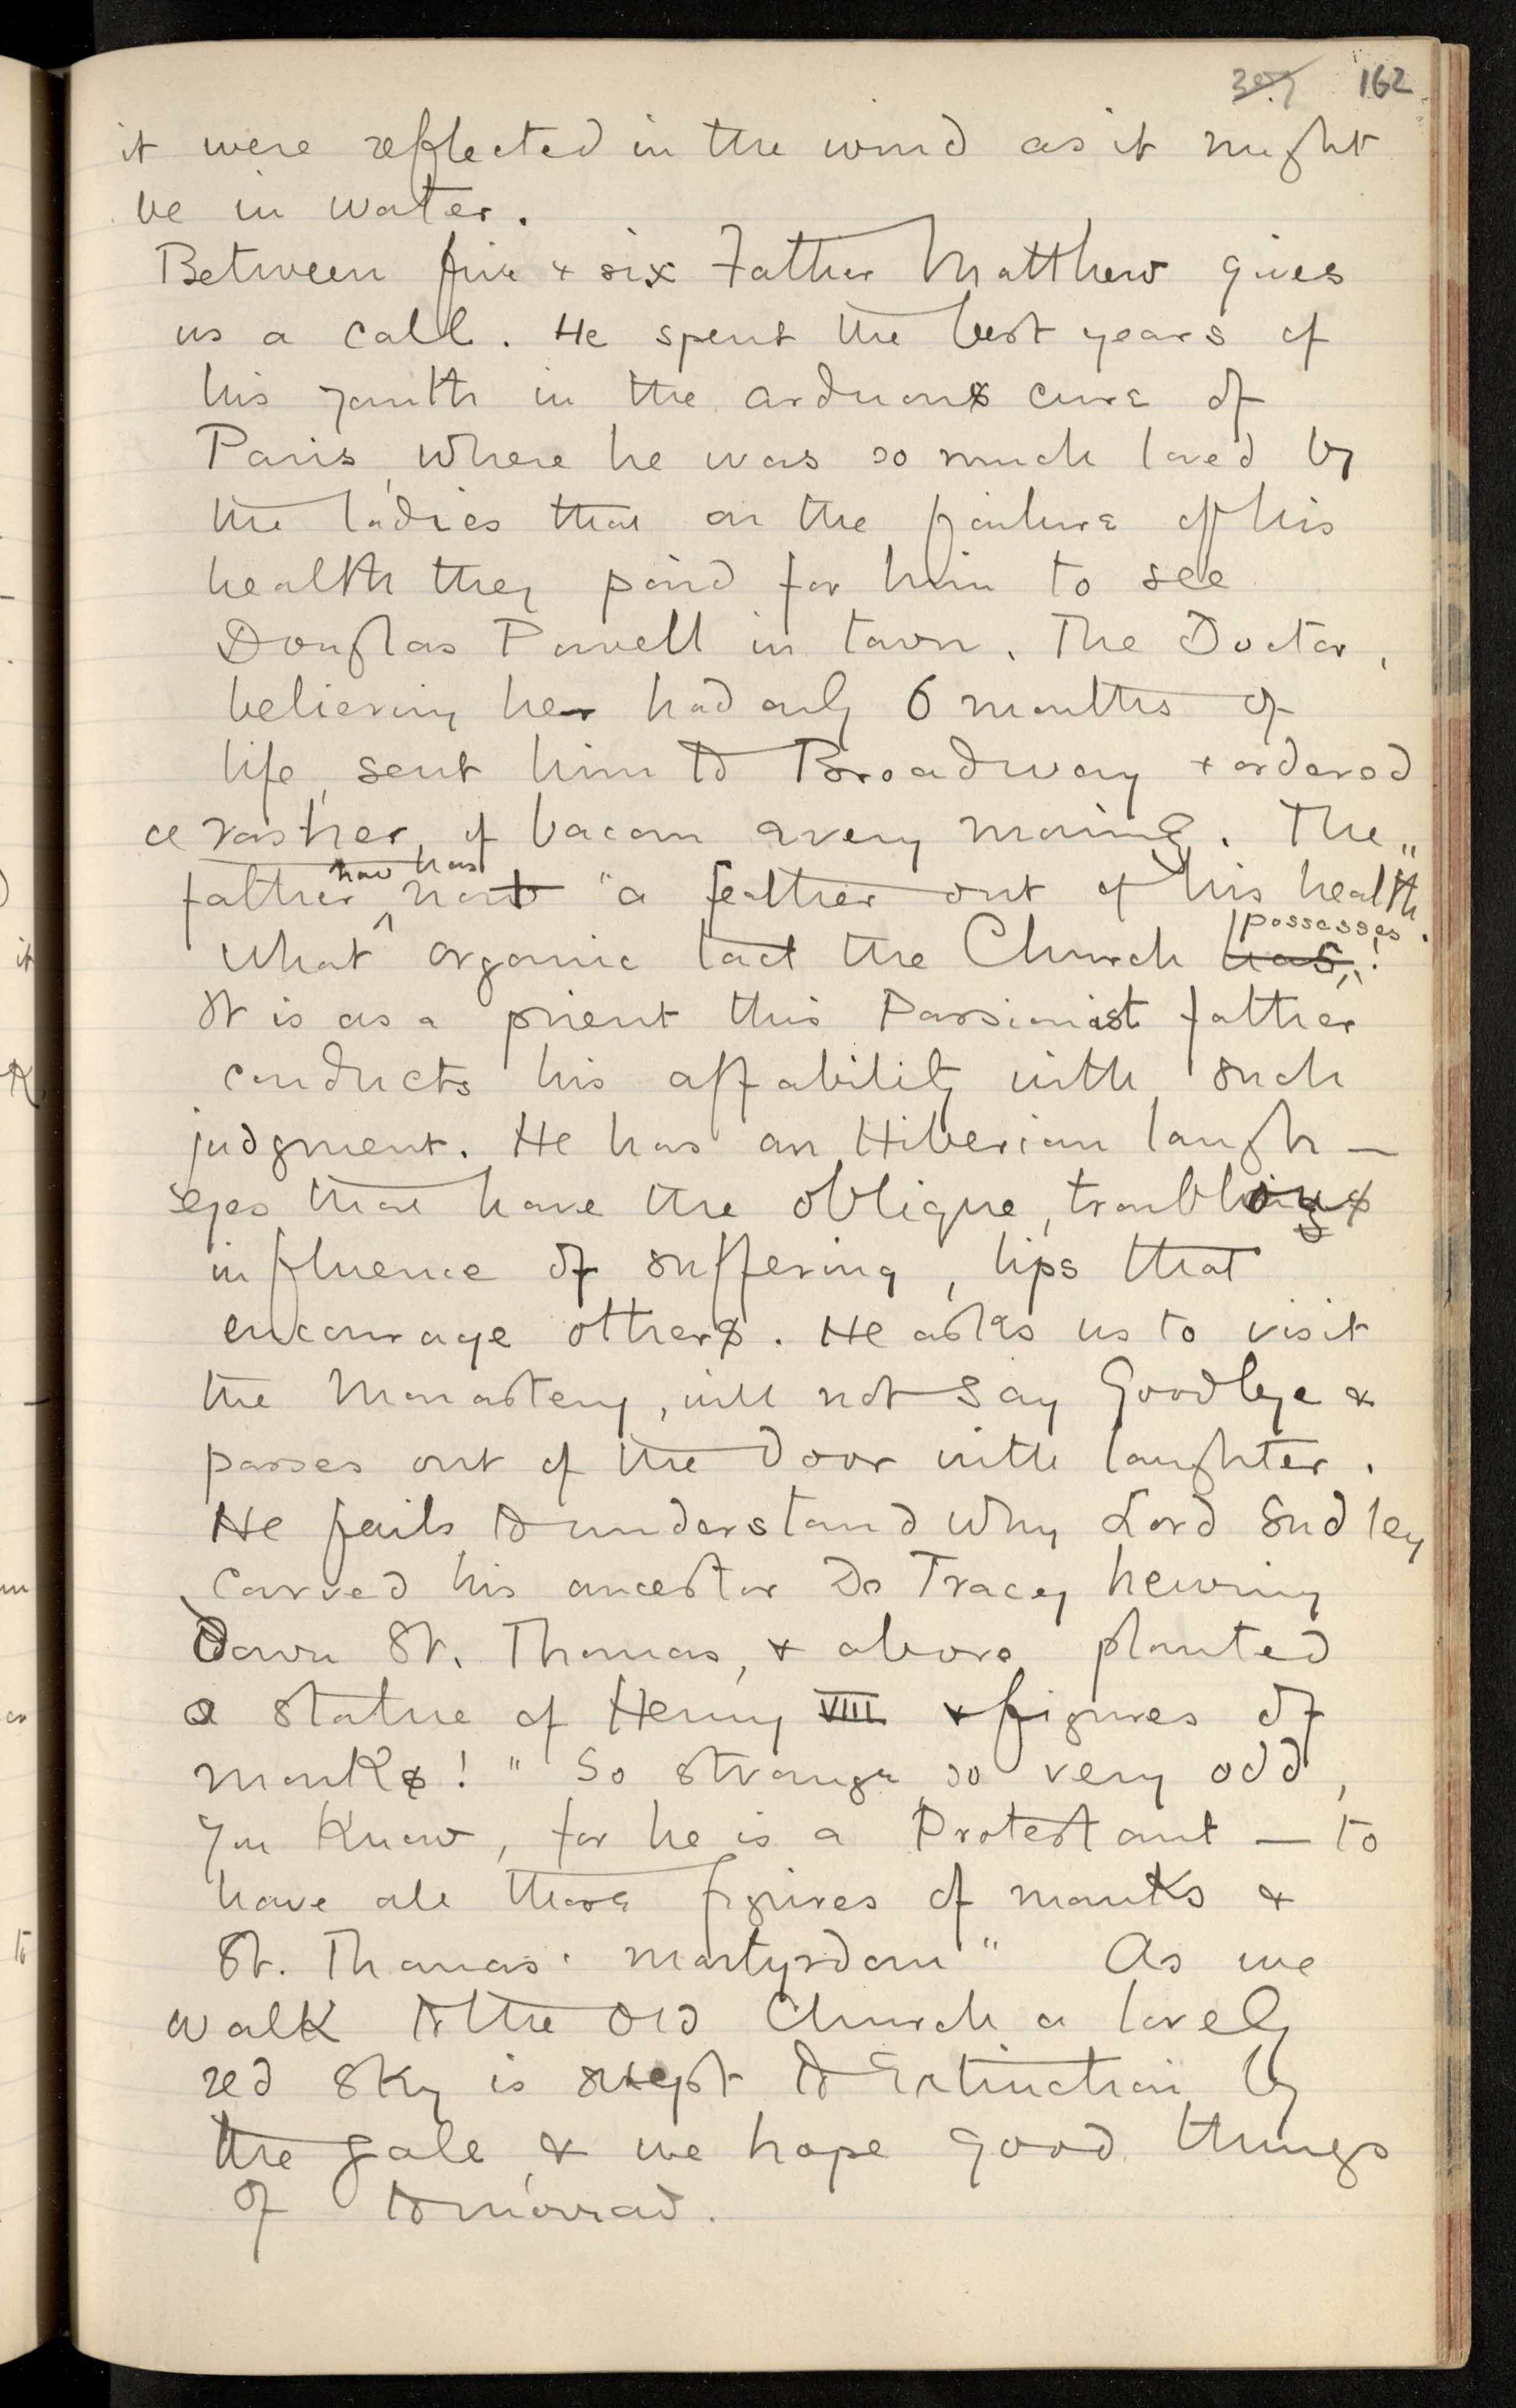 162
it were reflected in the wind as it might
be in water.
Between five & six Father Matthew gives
us a call. He spent the best years of
his youth in the arduous cure of
Paris, where he was so much loved by
the ladies that on the failure of his
health they paid for him to see
Douglas Powell in town. The Doctor,
believing he had only 6 months of
life, sent him to Broadway & ordered
a rasher of bacon every morning. The
father now has "a feather out of his health".
What organic tact the Church has possesses!
It is as a priest this Passionist father
conducts his affability with such
judgment. He has an Hiberian laugh —
eyes that have the oblique, troubling
influence of suffering, lips that
encourage others. He asks us to visit
the Monastery, will not say Goodbye &
passes out of the door with laughter.
He fails to understand why Lord Sudley
carved his ancestor De Tracey hewing
Down St. Thomas, & above planted
a statue of Henry VIII & figures of
monks! "So strange, so very odd,
you know, for he is a Protestant — to
have all those figures of monks &
St. Thomas' martyrdom" As we
walk to the old Church a lovely
red sky is swept to Extinction by
the gale, & we hope good things
of tomorrow.